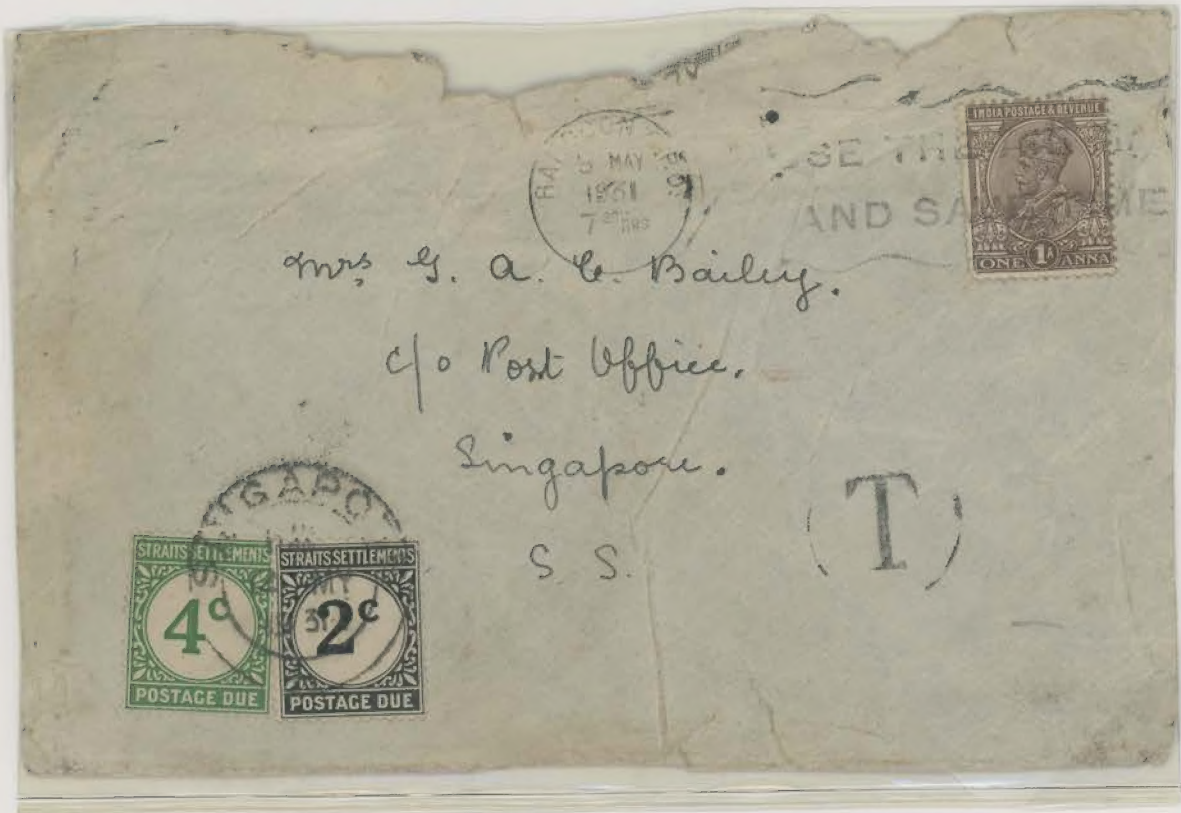 MAY
1931
USE THE
AND SA
INDIA POSTAGE & REVENUE
ONE 1A ANNA
Mrs G. A. C. Bailey.
c/o Post Office.
Singapore.
S. S.
T
SINGAPO
MY
31
STRAITS SETTLEMENTS
4c
POSTAGE DUE
STRAITS SETTLEMENTS
2c
POSTAGE DUE